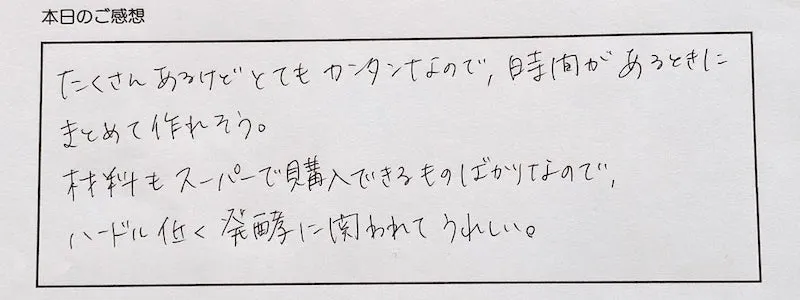 本日のご感想
たくさんあるけどとてもカンタンなので、時間があるときに
まとめて作れそう。
材料もスーパーで購入できるものばかりなので、
ハードル低く発酵に関われてうれしい。